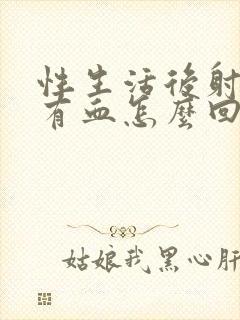 性生活後射
有血怎麼回
姑娘我黑心肝